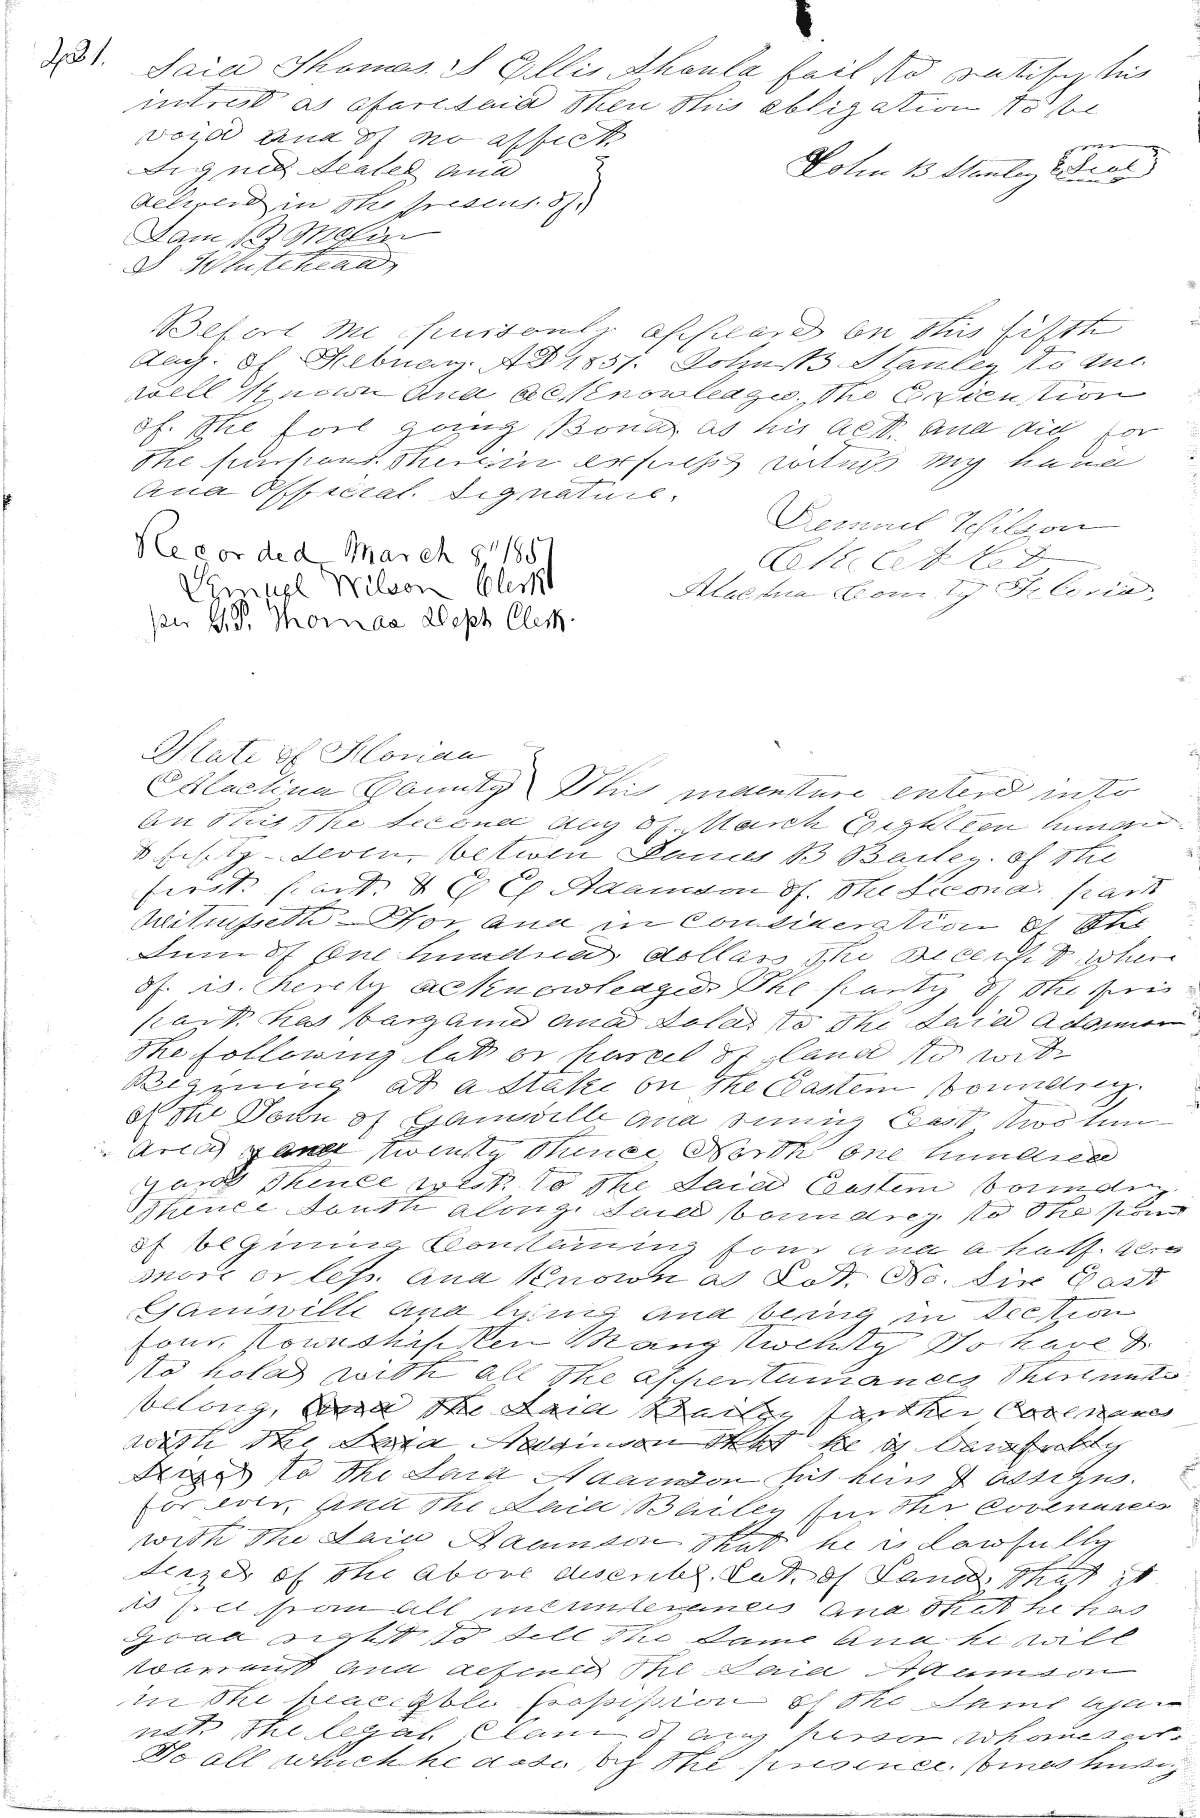 281.
Said Thomas S Ellis Should fail to satisfy his
intrest as afaresaid then this obligation to be
void and of no affect
Signed Sealed and
delivered in the presens of
John B Stanley Seal
Sam B
S Whitehead
Before me personly appeard on this fifth
day. of Februar. AD 1857. John B Stanley to me
well known and acknowledges the Execution
of. the fore going Bond as his act. and did for
the purpous. therein express witness my hand
and official. Signature.
Lemuel Wilson
Clk
Alachua County Florida
Recorded March 8" 1857
Lemuel Wilson Clerk
per G.P. Thomas Deph Clerk.
State of Florida
Alachua County This indenture entered into
on this the second day of March Eighteen hundred
& fifty-seven, between James B Bailey. of the
first. part. & Adamson of. the second. part
Witnesseth For and in Consideration of the
Sum of one hundred dollars the receipt where
of. is. herely acknowledged The party of the firs
part has bargained and sold to the said Adamson
the following lot or parcel of land to wit
Begining at a stake on the Eastern boundrey.
of the Town of Gainsville and runing East two hun
dred and twenty thence North one hundred
yards thence west. to the said Eastern boundry
thence South along. said boundrey. to the point
of begining Containing four and a half. acres
more or less. and Known as Lot. No. Six East
Gainsville and lying and being in Section
four, township ten Rang twenty To have &
to hold with all the appertunances thereunto
belong, and the said Bailey further Covenants
with the said Adamson that he is lawfully
Seized to the said Adamson his heirs & assigns.
for ever, and the said Bailey further covenances
with the said Adamson that he is lawfully
seized of the above describd. Lot. of Land. that it
is free from all incumberances and that he has
good right to sell the same and he will
warrant and defend the said Adamson
in the peaceable possission of the same again
nst. the legal. Claim of any person whomesoever.
To all which he dose. by the presence. bind himself